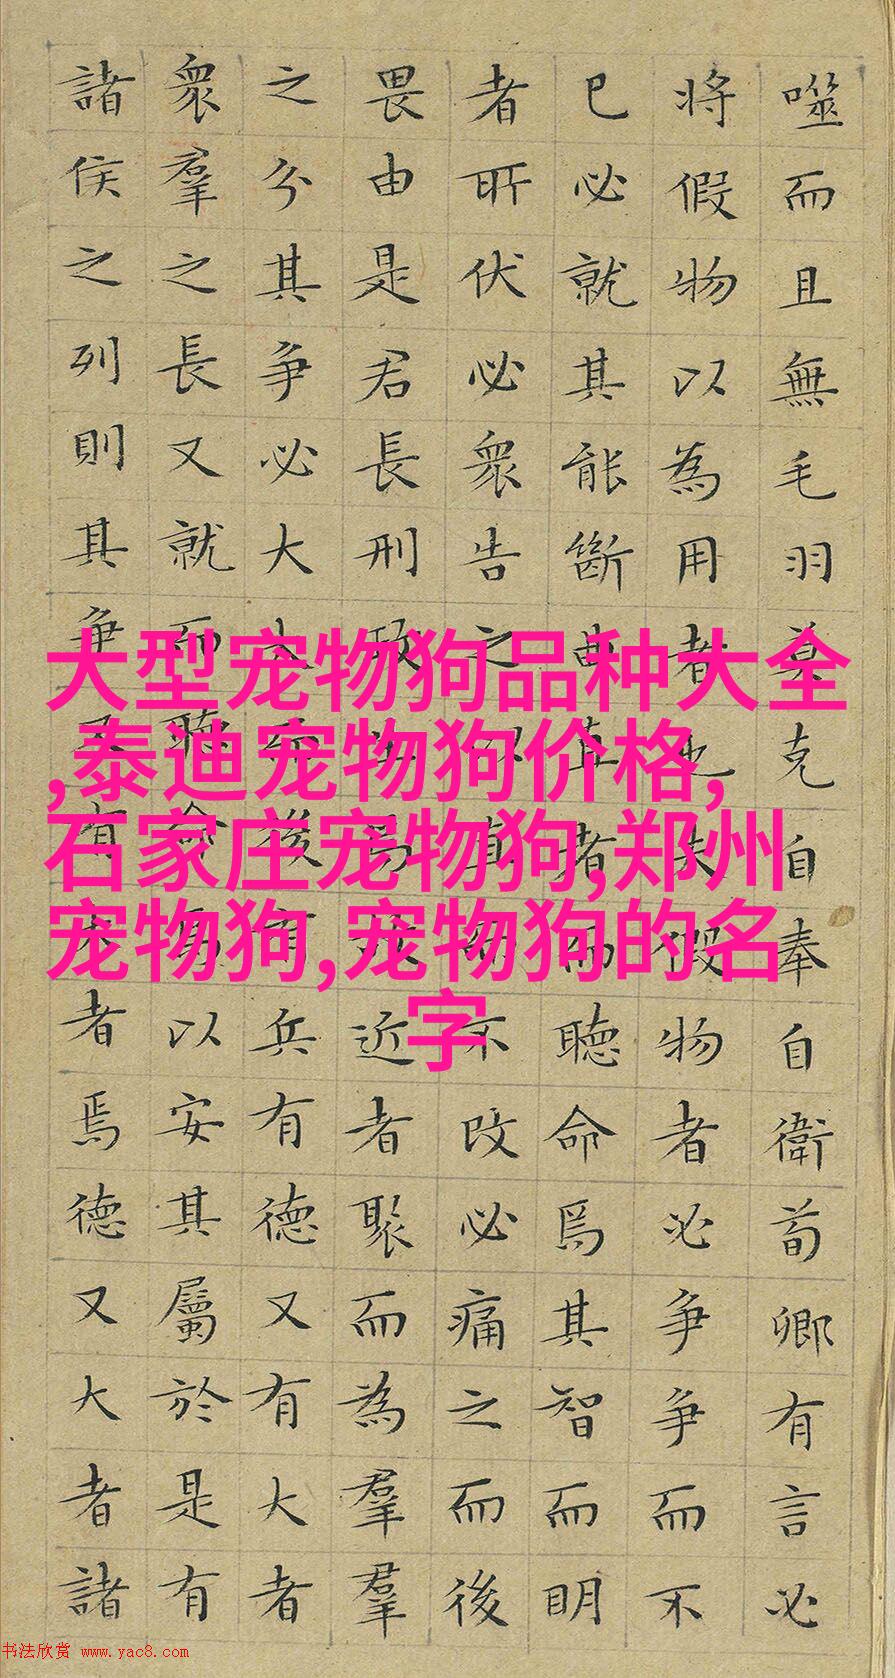 噬而且無毛羽莫克自奉自衛荀卿有言必
將假物以為用者也夫假物者必争争而不
已必就其能斷曲直者而聽命焉其智而明
者所伏必衆告之以直而不改必痛之而後
畏由是君長刑政生焉故近者聚而為羣羣
之分其争必大大而後有兵有德又有大者
衆羣之長又就而聽命焉以安其屬於是有
諸侯之列則其争又有大者焉德又大者諸
大型宠物狗品种大全
,泰迪宠物狗价格,
石家庄宠物狗,郑州
宠物狗,宠物狗的名
字
书法欣赏 www.yac8.com